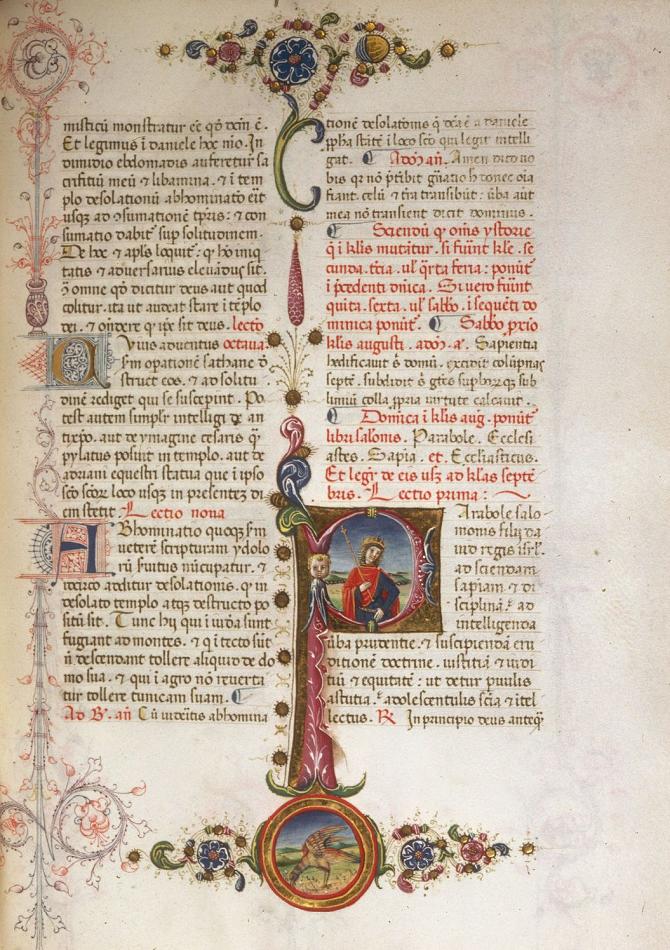 misticū monstratur ee qď dcm ē.
Et legimus i daniele hoc mō. In
dimidio ebdomadis auferetur sa
crifitiū meū ⁊ libamina. ⁊ i tem
plo desolationū abhominatio eīt
usqꝫ ad ꝯsumationē tpris: ⁊ con
sumatio dabit' sup solitudinem.
De hoc ⁊ apls loquit': ꝙ hō iniq
tatis ⁊ adversarius elevandus sit.
ꝯ omne qď dicitur deus aut quod
colitur. ita ut audeat stare i tēplo
dei. ⁊ oñdere ꝙ ipe sit deus. lectō
Quius adventus octaua.
sm opationē sathane ō
struct eos. ⁊ ad solitu
dinē rediget qui se suscepint. Po
test autem simplr intelligi de an
tixpo. aut de ymagine cesaris q̄
pylatus posuit in templo. aut de
adriani equestri statua que i ipso
scō scōꝝ loco usqꝫ in presentez di
em stetit. Lectio nona
Abhominatio quoqꝫ sm
veterē scripturam ydolo
rū ſuitus nūcupatur. ⁊
idcirco additur desolationis. ꝙ in
desolato templo atqꝫ destructo po
situ sit. Tunc hij qui i iudea sunt
fugiant ad montes. ⁊ q i tecto sūt
n̄ descendant tollere aliquid de do
mo sua. ⁊ qui i agro nō reverta
tur tollere tunicam suam.
Ad B'. an̄ Cū videritis abhomina
tionē desolationis q dcā ē a daniele
ppha statē i loco scō qui legit intelli
gat. Adoꝫ an̄. Amen dico vo
bis qꝛ nō ptibit gn̄atio h̄ donec oīa
fiant. celū ⁊ tr̄a transibūt: ūba aūt
mea nō transient dicit dominus.
Sciendū ꝙ om̄s ystorie
q i klis mutātur. si fuīnt kle. se
cunda. tcīa. ul' q̄rta feria: ponūt'
i pcedenti dnica. Si vero fuīnt
quita. sexta. ul' sabbo. i sequēti do
minica ponūt'. Sabbo pxīo
klis augusti. adoꝫ. a. Sapientia
hedificauit s' domū. excidit colūpnas
septē. subdidit s' gtes supboꝝqꝫ sub
limiū colla ppria virtute calcavit.
Dom̄ica i klis aug. ponūt'
libri salonis. Parabole. Ecclesi
astes. Sapia. et. Ecclesiasticus.
Et legr de eis usqꝫ ad klas septē
bris. Lectio prima:
Parabole salo
monis filij da
vid regis isrl.
ad sciendam
sapiam. ⁊ di
sciplinā. ad
intelligenda
ūba prudentie. ⁊ suscipiendā eru
ditionē doctrine. iustitiā ⁊ iudi
tiū ⁊ equitatē: ut detur puulis
astutia. adolescentulis scīa ⁊ itel
lectus. ℟ In principio deus anteq̄